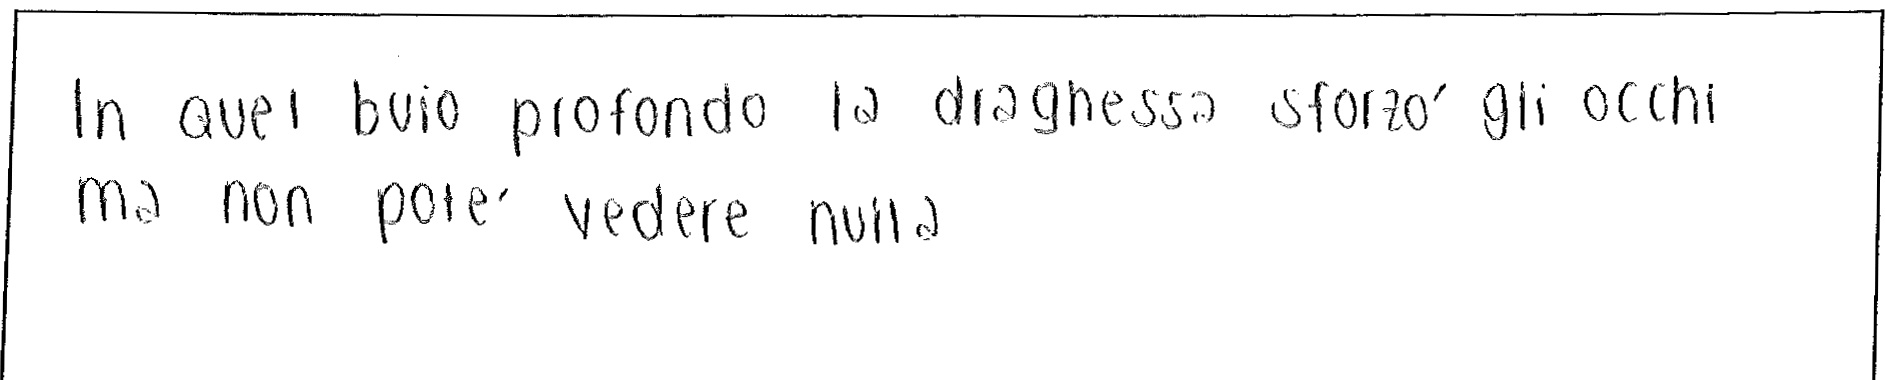 In quel buio profondo la draghessa sforzo' gli occhi
ma non pote' vedere nulla